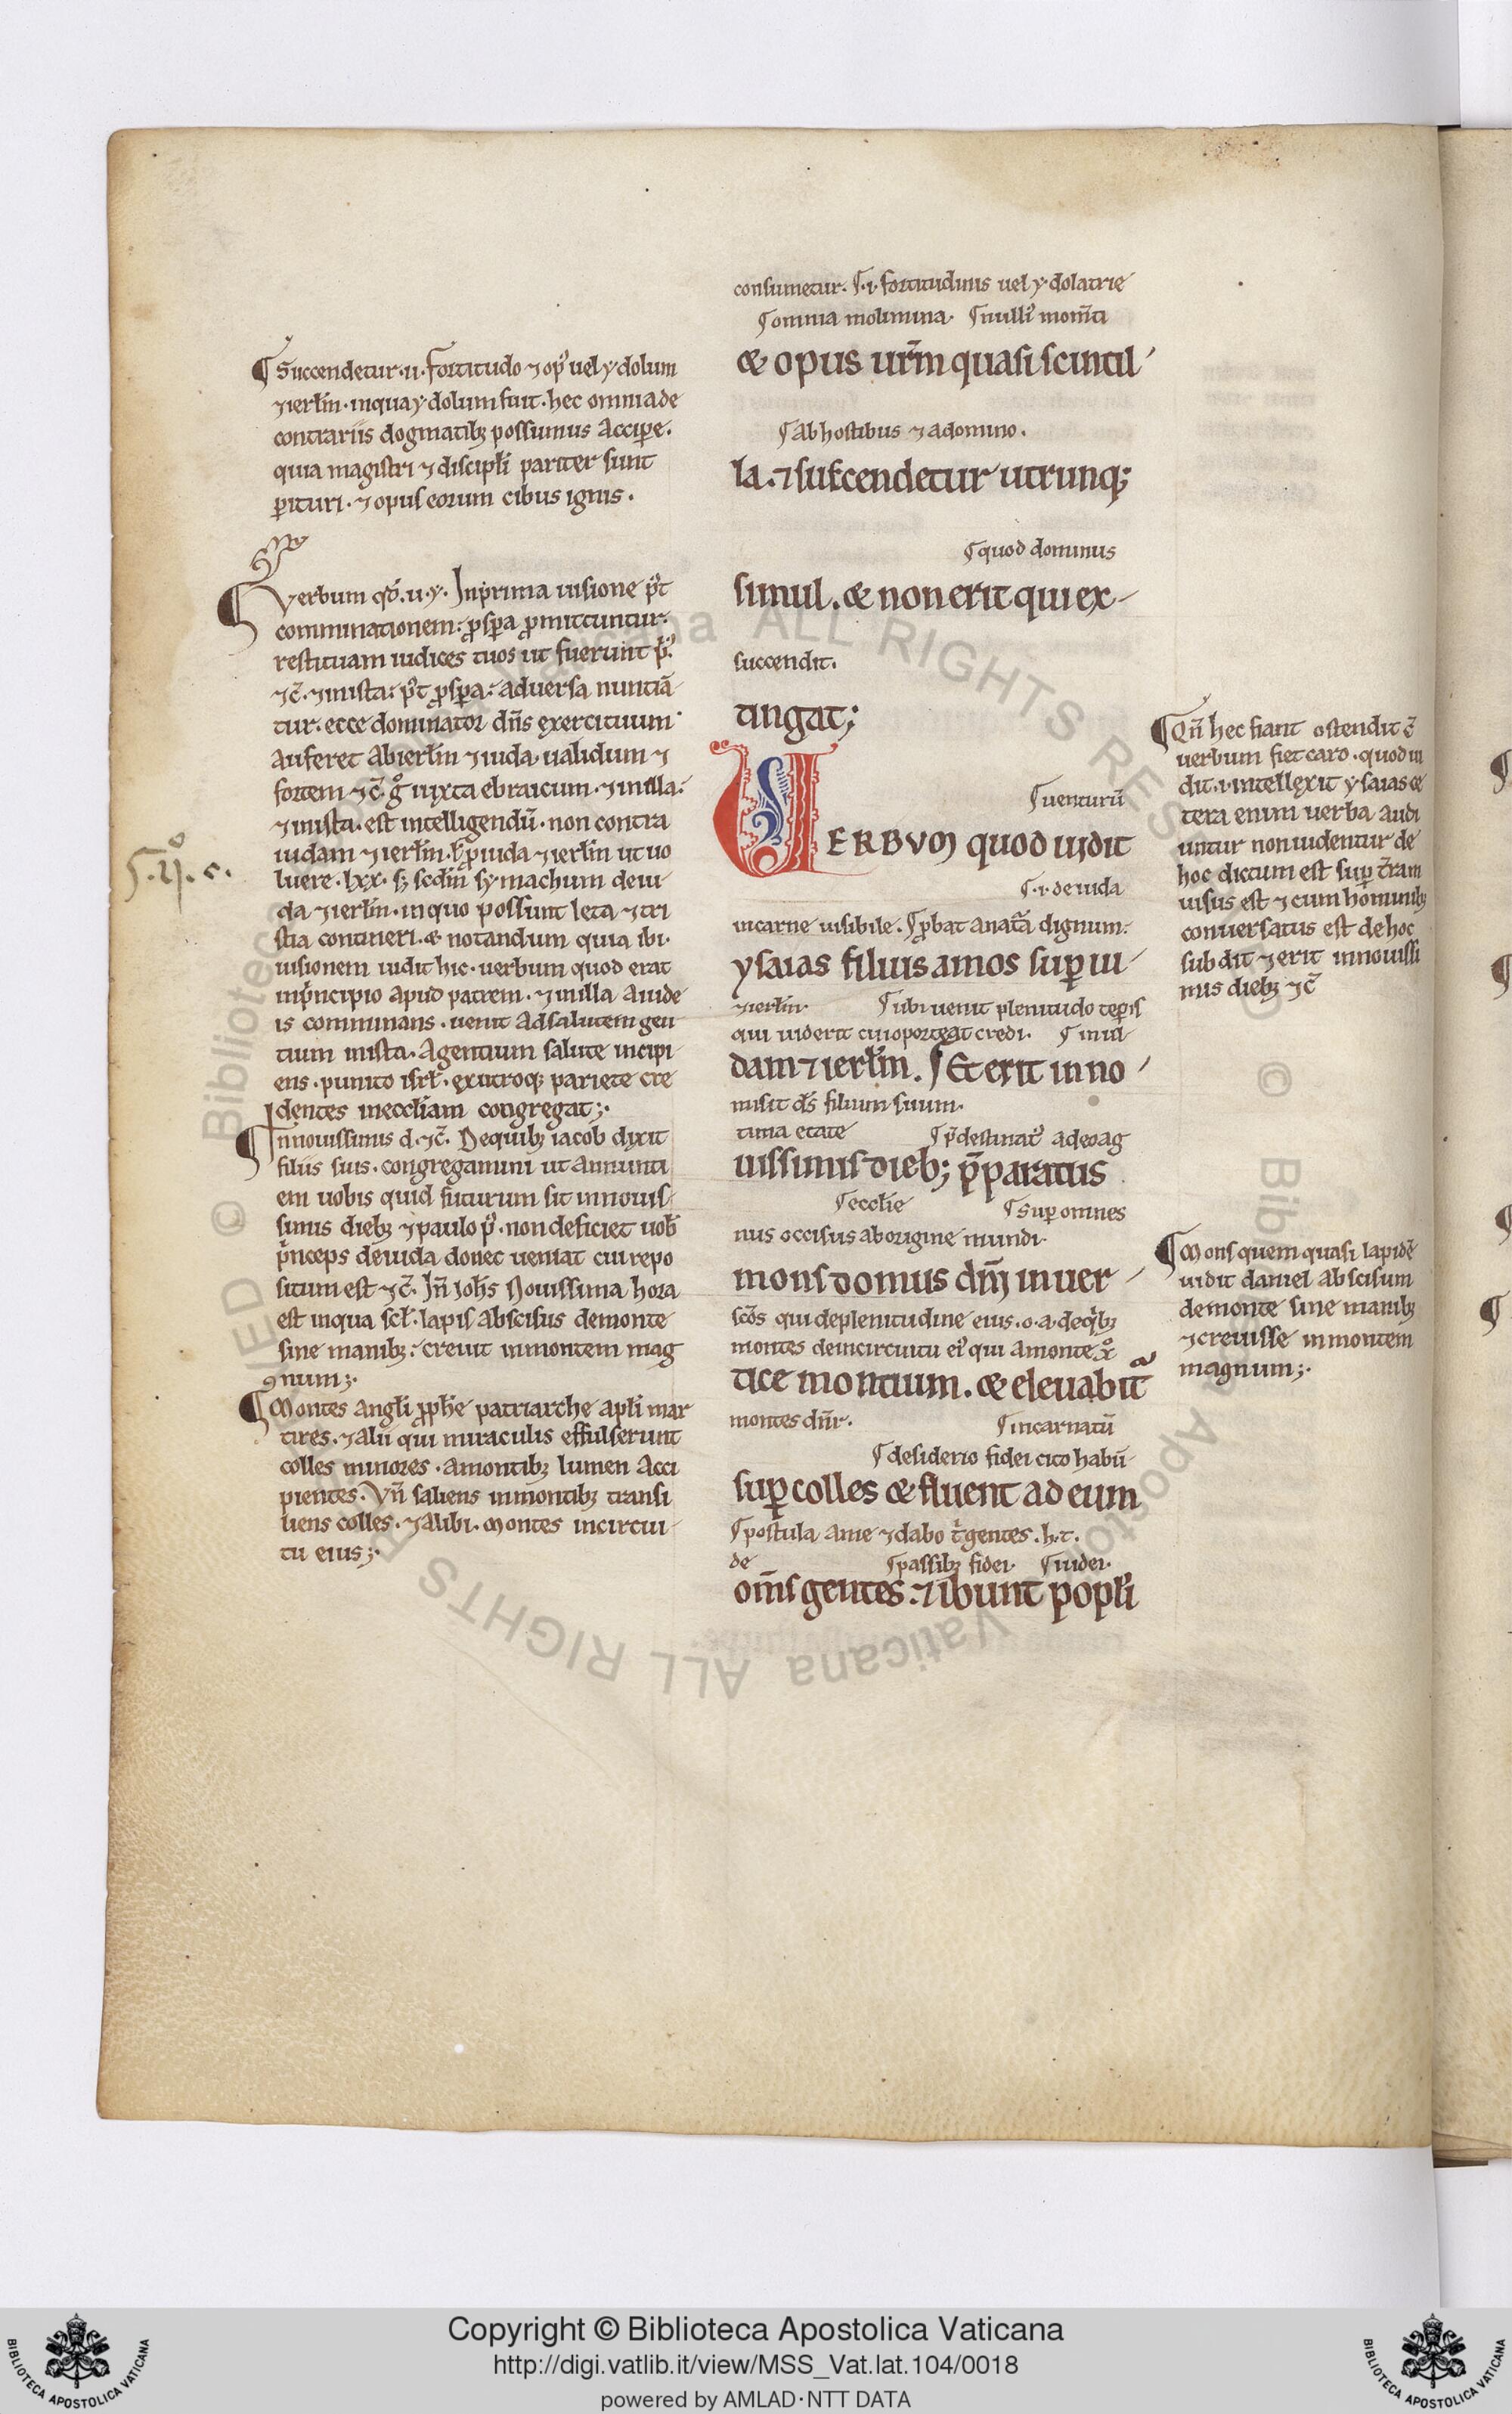 ¶ Succendetur .ii. fortitudo ⁊ opꝰ uel ydolum
⁊ ierl̄m. in qua ydolum fuit. hec omnia de
contrariis dogmatibꝫ possumus accipere.
quia magistri ⁊ discipl̄i pariter sunt
ꝑituri. ⁊ opus eorum cibus ignis.
¶ Verbum qđ. u. y. In prima uisione p̄t
comminationem: ꝓspera ꝓmittuntur.
restituam iudices tuos ut fuerunt p̄ꝰ.
⁊ c̄. ⁊ in ista: p̄t ꝓspera: aduersa nuntiā
tur. ecce dominator dn̄s exercituum
auferet ab ierl̄m ⁊ iuda ualidum ⁊
fortem ⁊ c̄. gͦ iuxta ebraicum. ⁊ in illa:
⁊ in ista. est intelligendū. non contra
iudam ⁊ ierl̄m. ł ꝓ iuda ⁊ ierl̄m ut uo
luere. lxx. sꝫ scdm̄ symachum de iu
da ⁊ ierl̄m. in quo possunt leta ⁊ tri
stia contineri. & notandum quia ibi.
uisionem uidit hic. uerbum quod erat
in principio apud patrem. ⁊ in illa a iude
is comminans. uenit ad salutem gen
tium in ista. A gentium salute incipi
ens. punito isrł. ex utroqꝫ pariete cre
dentes in eccl̄iam congregat;.
¶ In nouissimis d. ⁊ c̄. De quibꝫ iacob dixit
filiis suis. congregamini ut annunti
em uobis quid futurum sit in nouis
simis diebꝫ ⁊ paulo pꝰ. non deficiet uob̄
princeps de iuda donec ueniat cui repo
situm est ⁊ c̄. Iñ ioh̄s Nouissima hora
est in qua scł. lapis abscisus de monte
sine manibꝫ: creuit in montem mag
num;.
¶ Montes angl̄i ꝓph̄e patriarche apl̄i mar
tires. ⁊ alii qui miraculis effulserunt
colles minores. a montibꝫ lumen acci
pientes. Vñ saliens in montibꝫ transi
liens colles. ⁊ alibi. Montes in circui
tu eius;.
consumetur. ¶ .i. fortitudinis uel ydolatrie
¶ omnia molimina. ¶ nulliꝰ mom̄ti
& opus ur̄m quasi scintil
¶ Ab hostibus ⁊ a domino.
la. ⁊ succendetur utrunqꝫ
¶ quod dominus
simul. & non erit qui ex
succendit.
tingat;
¶ uenturū
VERBVM quod uidit
¶ .i. de iuda
in carne uisibile. ¶ ꝓbat a nat̄a dignum.
ysaias filius amos suꝑ iu
⁊ ierl̄m. ¶ ubi uenit plenitudo teꝑis
qui uiderit cui oporteat credi. ¶ in ul
dam ⁊ ierl̄m. ¶ Et erit in no
misit dš filium suum.
tima etate ¶ p̄destinatꝰ adeo ag
uissimis diebꝫ p̄paratus
¶ eccl̄ie ¶ super omnes
nus occisus ab origine mundi.
mons domus dn̄i in uer
scōs qui de plenitudine eius. o. a. de qͥbꝫ
montes de in circuitu eiꝰ qui a monte xͦ
tice montium. & eleuabit̄
montes dn̄r. ¶ incarnatū
¶ desiderio fidei cito habū
suꝑ colles & fluent ad eum
¶ postula a me ⁊ dabo tͥ gentes. h. t.
de ¶ passibꝫ fidei. ¶ iudei.
om̄s gentes. ⁊ ibunt popl̄i
¶ Qn̄ hec fiant ostendit c̄
uerbum fiet caro. quod ui
dit. i. intellexit ysaias ce
tera enim uerba audi
untur non uidentur de
hoc dictum est suꝑ t̄ram
uisus est ⁊ cum hominibꝫ
conuersatus est de hoc
subdit ⁊ erit in nouissi
mis diebꝫ ⁊ c̄
¶ Mons quem quasi lapidē
uidit daniel abscisum
de monte sine manibꝫ
⁊ creuisse in montem
magnum;.
Copyright © Biblioteca Apostolica Vaticana
http://digi.vatlib.it/view/MSS_Vat.lat.104/0018
powered by AMLAD·NTT DATA
BIBLIOTECA APOSTOLICA VATICANA
BIBLIOTECA APOSTOLICA VATICANA